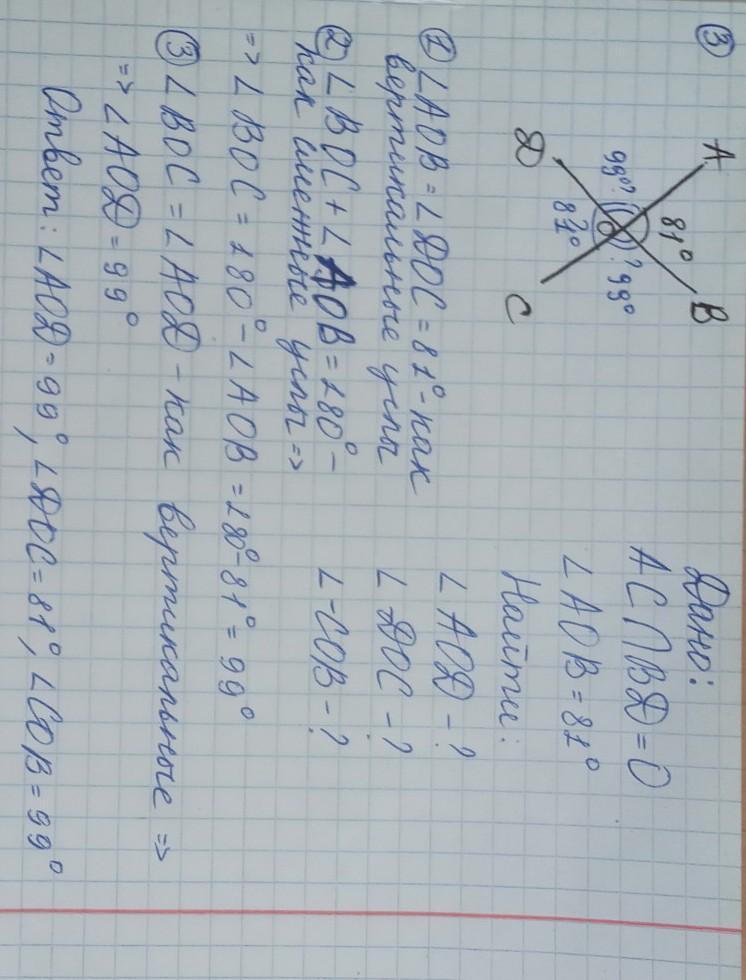 ③
A
81°
B
99°?
O
? 99°
?
81°
D
C
Дано:
AC∩BD=O
∠AOB=81°
Найти:
∠AOD-?
∠DOC-?
∠-COB-?
① ∠AOB=∠DOC=81°-как
вертикальные углы
② ∠BOC+∠AOB=180°-
как смежные углы =>
=> ∠BOC=180°-∠AOB=180°-81°=99°
③ ∠BOC=∠AOD-как вертикальные =>
=> ∠AOD=99°
Ответ: ∠AOD=99°, ∠DOC=81°, ∠COB=99°